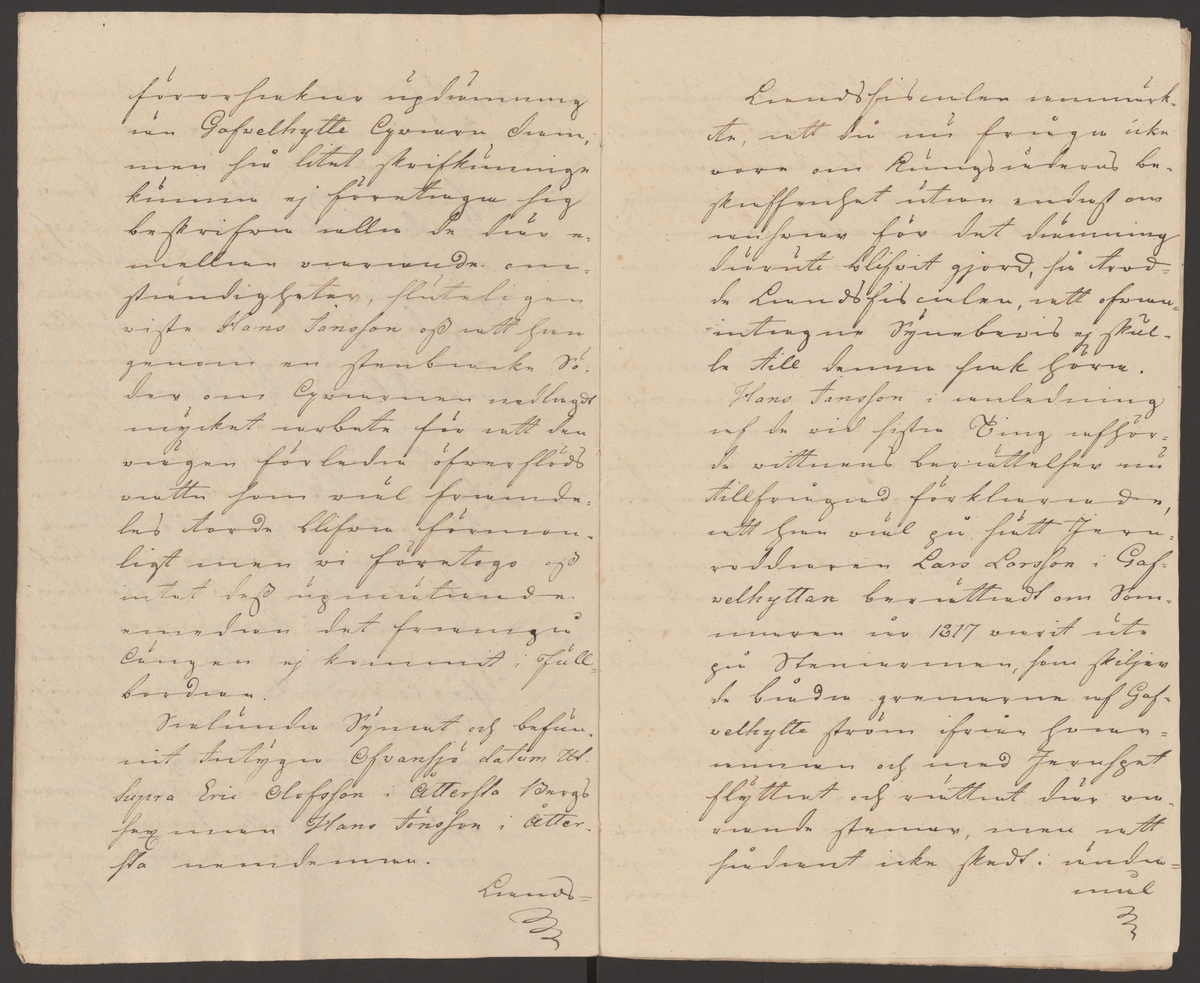 förorsakar updämning
ur Gafvelhytte Qvarn dam,
men så litet skrifkunnige
kunna ej företaga sig
beskrifva alla de där e-
mellan varande om-
ständigheter, sluteligen
viste Hans Jansson oß att han
genom en stenbracke Sö-
der om Qvarnen nedlagdt
mycket arbete för att den
vägen förleda öfverflöds
vattn som väl framde-
les torde blifva förmon-
ligt men vi företogo oß
intet deß upmätande
emedan det framgå
Cången ej kommit i full-
bordan.
Sålunda Synat och befun-
nit Intyga Ofvansjö datum Ut.
Supra Eric Olofsson i Åttersta Bergs
sex man Hans Jönsson i Åtter-
sta nemdeman.
Lands-
Landsfiscalen anmärk-
te, att då nu fråga icke
vore om Kungsådrans be-
skaffenhet utan endast om
ansvar för det dämning
därute blifvit gjord, så trod-
de Landsfiscalen, att ofvan-
intagne Synebevis ej skul-
le till denna sak höra.
Hans Jansson i anledning
af de vid sista Ting afhör-
de vittnens berättelser nu
tillfrågad förklarade,
att han väl på sätt Jern-
voddraren Lars Larsson i Gaf-
velhyttan berättadt om Som-
maren år 1817 varit ute
på Stenarmen, som skiljer
de båda grenarne af Gaf-
velhytte ström ifrån hvar-
annan och med Jernspet
flyttat och rättat där va-
rande stenar, men att
sådant icke skedt i ända-
mål